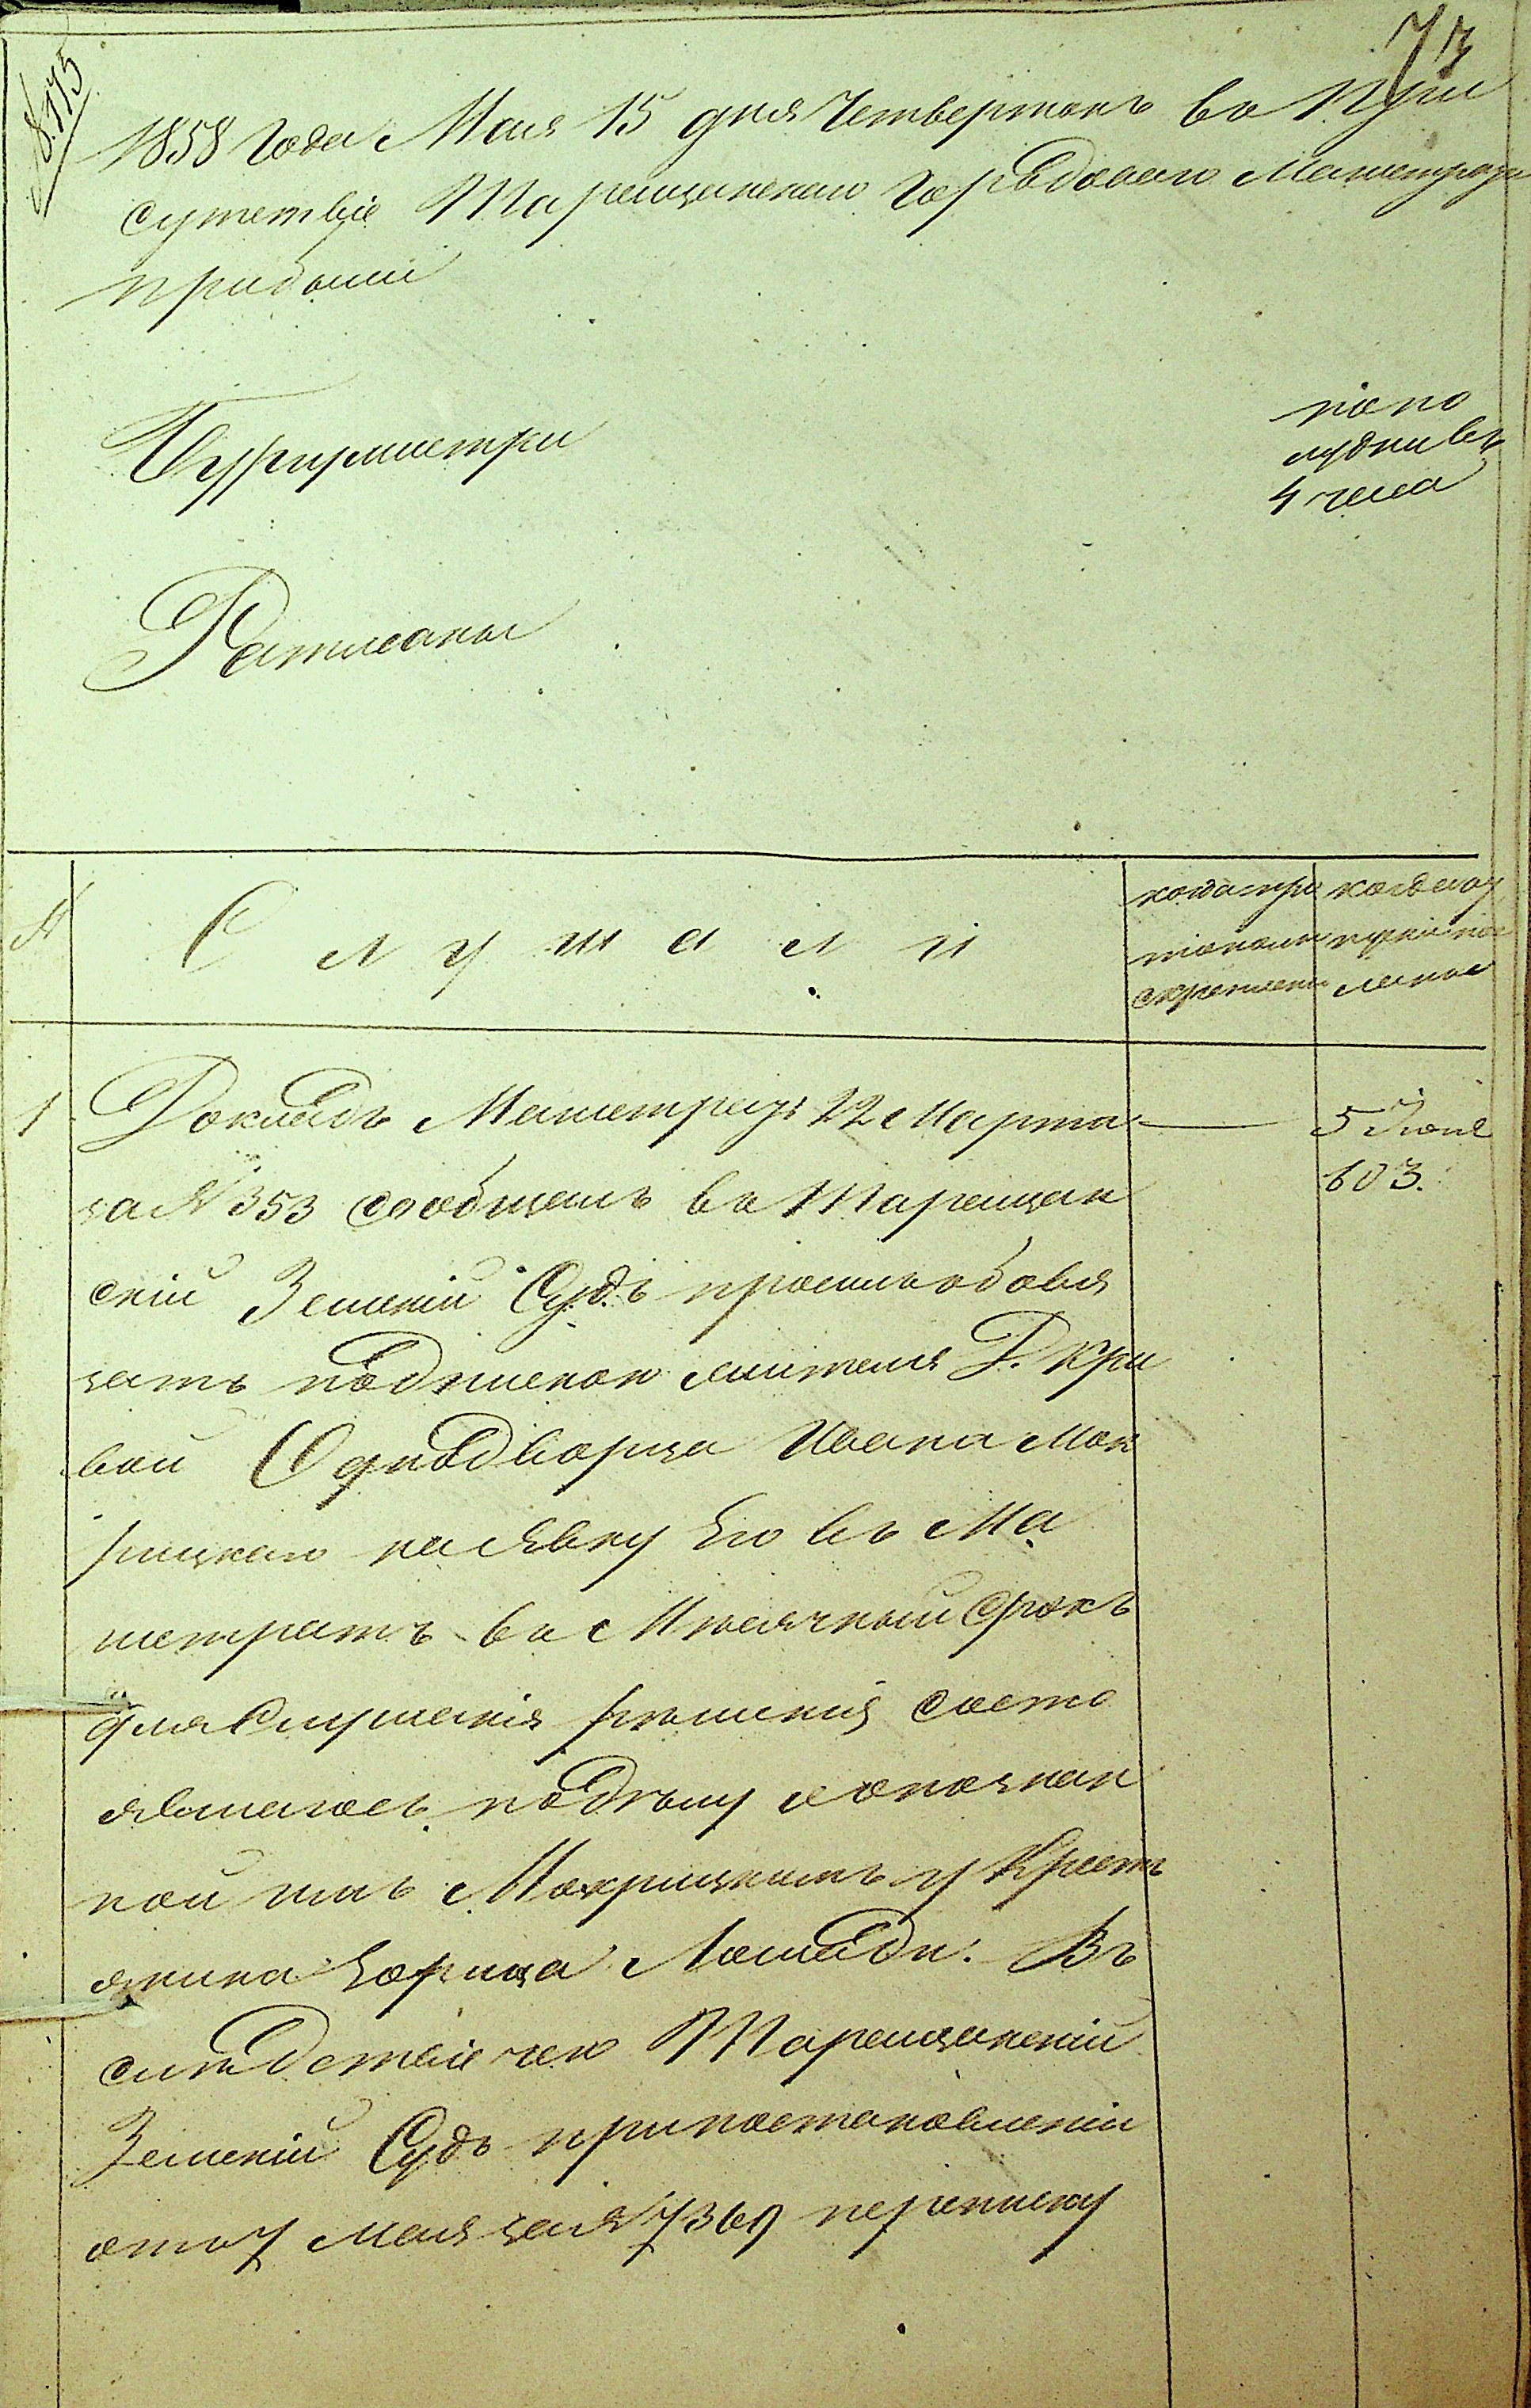 73
№ 175
1858 Года Мая 15 дня Четвертокъ во При
сутствіе Таращанскаго Городоваго Магистрата
прибыли
Бургомистри
по по
лудни въ
4 часа
Ратманы
№
Слушали
когда про
токолы
скреплены
когда
1
Докладъ Магистратъ 22 Марта
за № 353 сообщалъ въ Таращан
скій Земскій Судъ просилъ обовя
зать подпискою жителя Д. Кри
вой Однодворца Ивана Мок
рицкаго на явку Его въ Ма
гистратъ въ Мѣсячный срокъ
для слушанія рѣшенія состо
явшагось по дѣлу о опознан
ной имъ Мокрицкимъ у Крестъ
янина Лошади. Въ
слѣдствіе чего Таращанскій
Земскій Судъ при постановленіи
отъ 7 Мая за № 7369 переписку
5 Іюня
603.